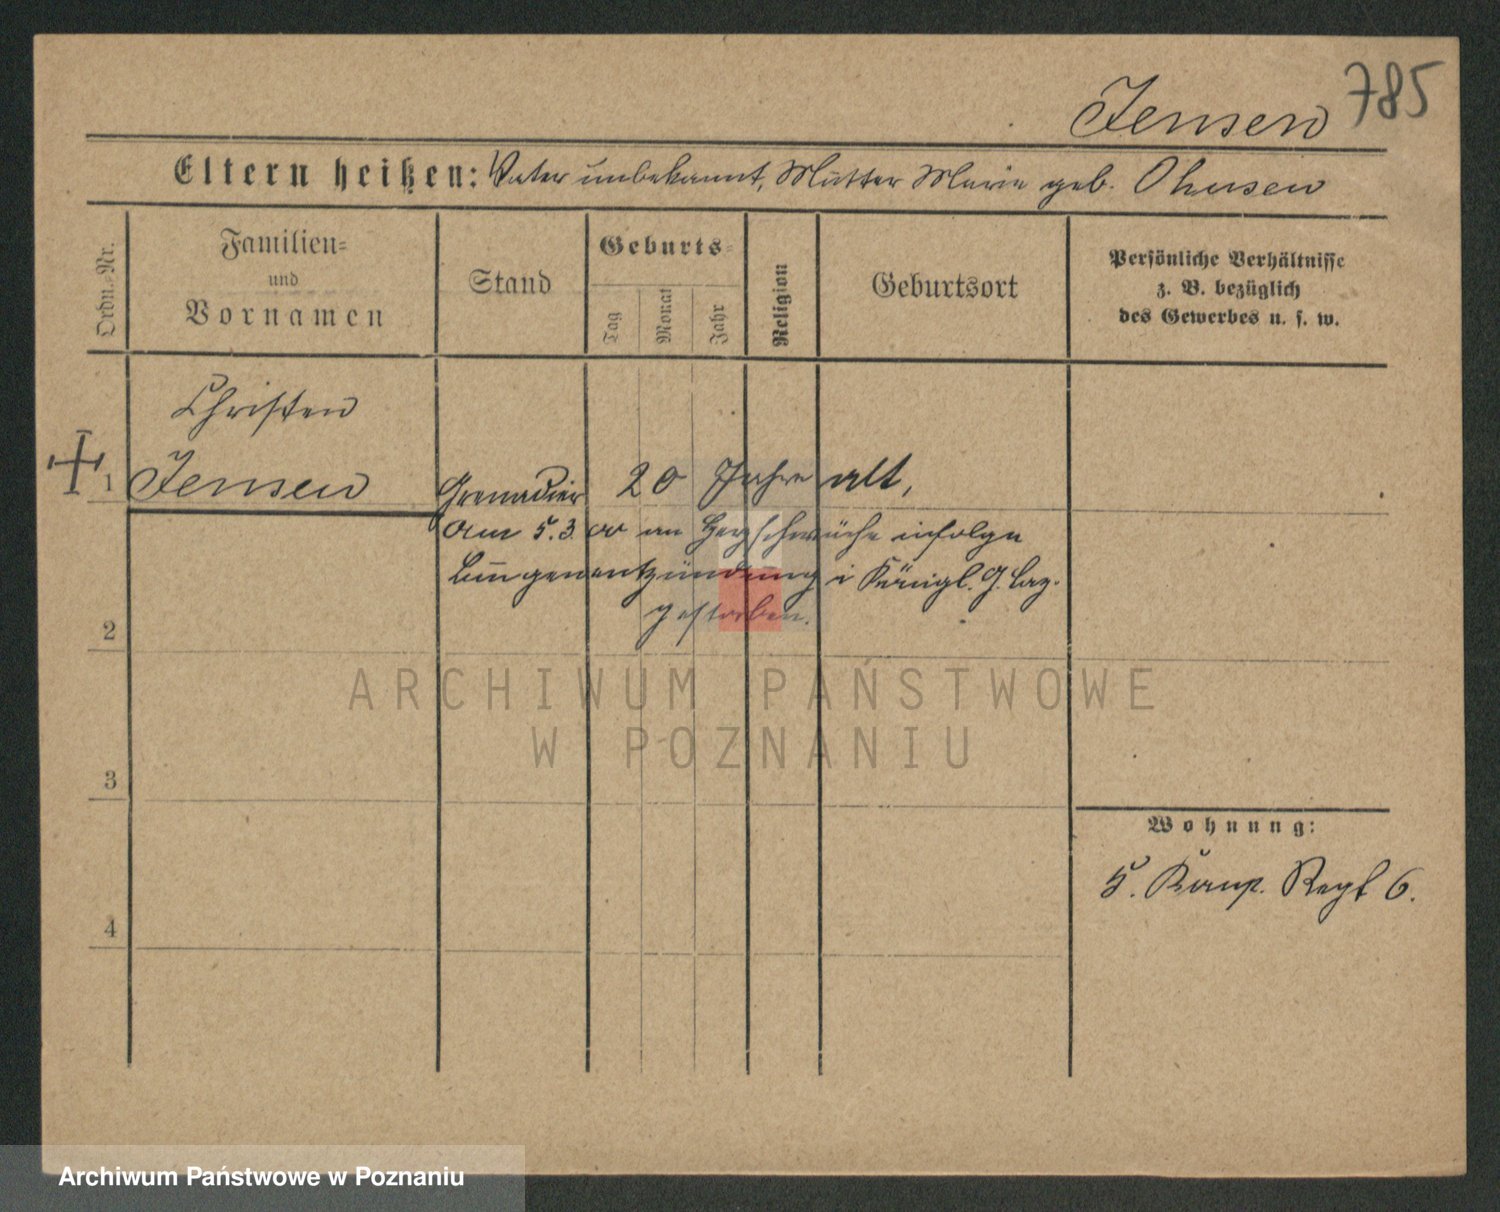 785
Jensen
Eltern heißen: Vater unbekannt, Mutter Marie geb. Ohnsen
Ordn.-Nr.
Familien-
und
Vornamen
Stand
Geburts-
Tag
Monat
Jahr
Religion
Geburtsort
Persönliche Verhältnisse
z. B. bezüglich
des Gewerbes u. s. w.
Christen
1 Jensen Grenadier 20 Jahre alt,
am 5.3. 00 an Herzschwäche infolge
Lungenentzündung i Königl. G. Laz.
gestorben.
2
3
4
Wohnung:
5. Komp. Regt 6.
ARCHIWUM PAŃSTWOWE
W POZNANIU
Archiwum Państwowe w Poznaniu